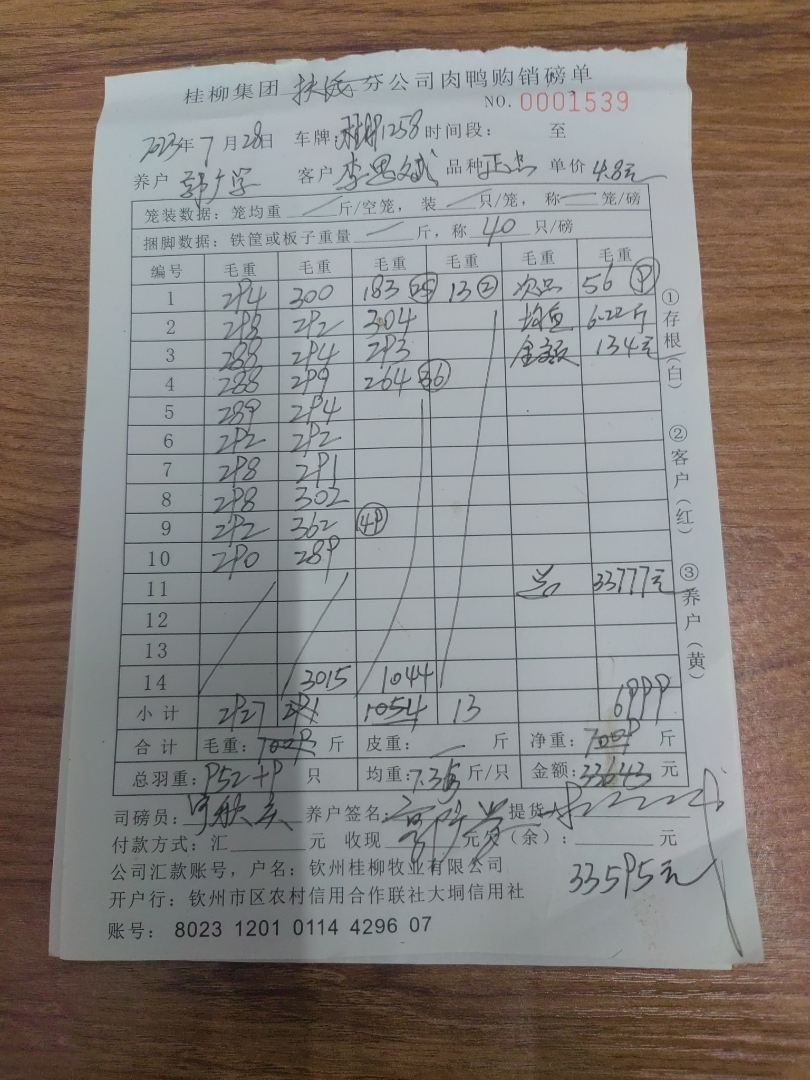 桂柳集团 扶绥 分公司肉鸭购销磅单
NO. 0001539
2023年 7 月 28日 车牌: 1258 时间段: 至
养户 郭广学 客户 李思斌 品种 单价 4.8元
笼装数据: 笼均重 斤/空笼, 装 只/笼, 称 笼/磅
捆脚数据: 铁筐或板子重量 斤, 称 40 只/磅
编号 毛重 毛重 毛重 毛重 毛重 毛重
1 294 300 183 25 13 2 次品 56 9
2 298 292 304 均重 6.22斤
3 288 294 293 金额 134元
4 288 299 264 36
5 289 294
6 292 292
7 298 291
8 298 302
9 292 362 49
10 290 289
11 总 33777元
12
13
14 3015 1044
小计 2927 1054 13 6999
合计 毛重: 7009 斤 皮重: 斤 净重: 7009 斤
总羽重: 952+9 只 均重: 7.35 斤/只 金额: 33643 元
司磅员: 养户签名: 提货
付款方式: 汇 元 收现 元欠(余): 元
公司汇款账号, 户名: 钦州桂柳牧业有限公司
33595元
开户行: 钦州市区农村信用合作联社大垌信用社
账号: 8023 1201 0114 4296 07
①存根(白)
②客户(红)
③养户(黄)